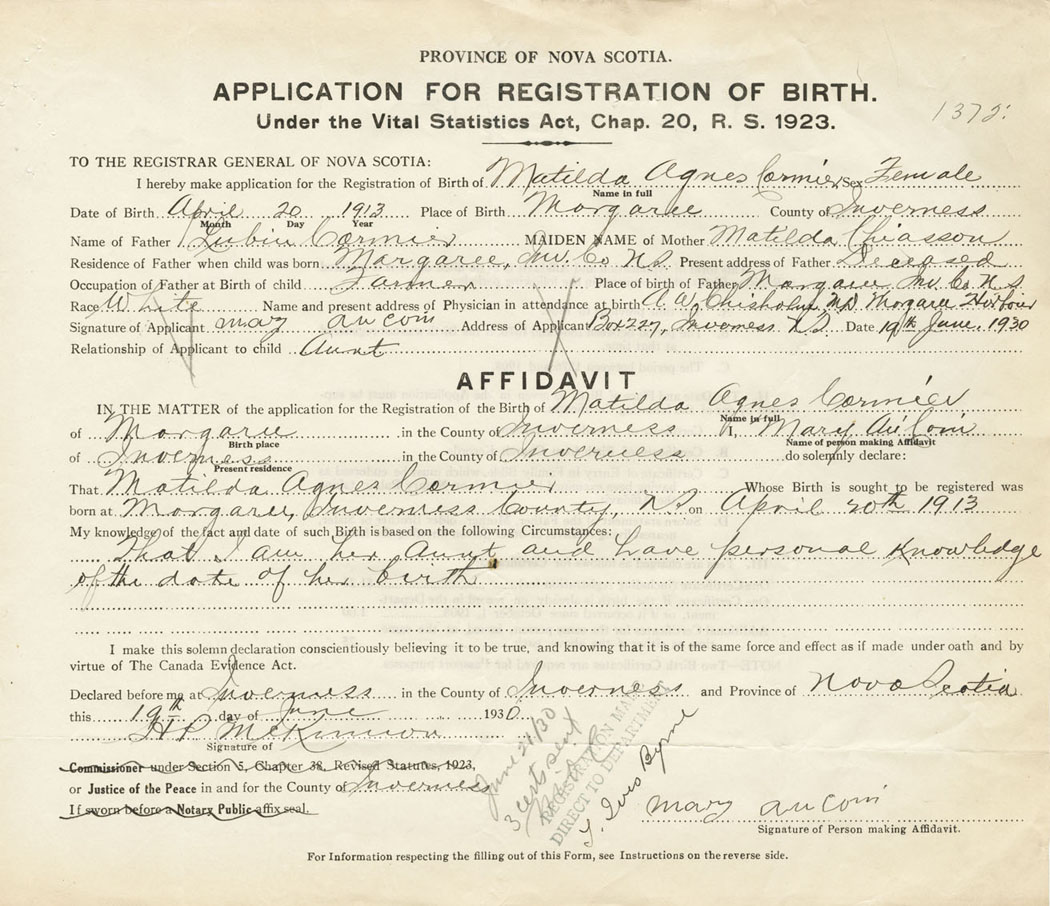 PROVINCE OF NOVA SCOTIA.
APPLICATION FOR REGISTRATION OF BIRTH.
1372.
Under the Vital Statistics Act, Chap. 20, R. S. 1923.
TO THE REGISTRAR GENERAL OF NOVA SCOTIA:
I hereby make application for the Registration of Birth of Matilda Agnes Cormier Sex Female
Name in full
Date of Birth April 20 1913 Place of Birth Margaree County of Inverness
Month Day Year
Name of Father Lubin Cormier MAIDEN NAME of Mother Matilda Chiasson
Residence of Father when child was born Margaree, Inv. Co N.S. Present address of Father Deceased
Occupation of Father at Birth of child Farmer Place of birth of Father Margaree Inv. Co. N.S.
Race White Name and present address of Physician in attendance at birth A. W. Chisholm, M.D. Margaree Harbour
Signature of Applicant Mary Au Coin Address of Applicant Box 227, Inverness N.S. Date 19th June 1930
Relationship of Applicant to child Aunt
AFFIDAVIT
IN THE MATTER of the application for the Registration of the Birth of Matilda Agnes Cormier
Name in full
of Margaree in the County of Inverness I, Mary Au Coin
Birth place Name of person making Affidavit
of Inverness in the County of Inverness do solemnly declare:
Present residence
That Matilda Agnes Cormier Whose Birth is sought to be registered was
born at Margaree, Inverness County, N.S. on April 20th 1913
My knowledge of the fact and date of such Birth is based on the following Circumstances:
That I am her Aunt and have personal knowledge
of the date of her birth
I make this solemn declaration conscientiously believing it to be true, and knowing that it is of the same force and effect as if made under oath and by
virtue of The Canada Evidence Act.
Declared before me at Inverness in the County of Inverness and Province of Nova Scotia
this 19th day of June 1930
H P McKinnon
Signature of
Commissioner under Section 5, Chapter 38, Revised Statutes, 1923,
or Justice of the Peace in and for the County of Inverness
If sworn before a Notary Public affix seal.
June 21/30
3 certs sent
REGISTRATION MADE
DIRECT TO DEPARTMENT
Ives Byrne
Mary Au Coin
Signature of Person making Affidavit.
For Information respecting the filling out of this Form, see Instructions on the reverse side.